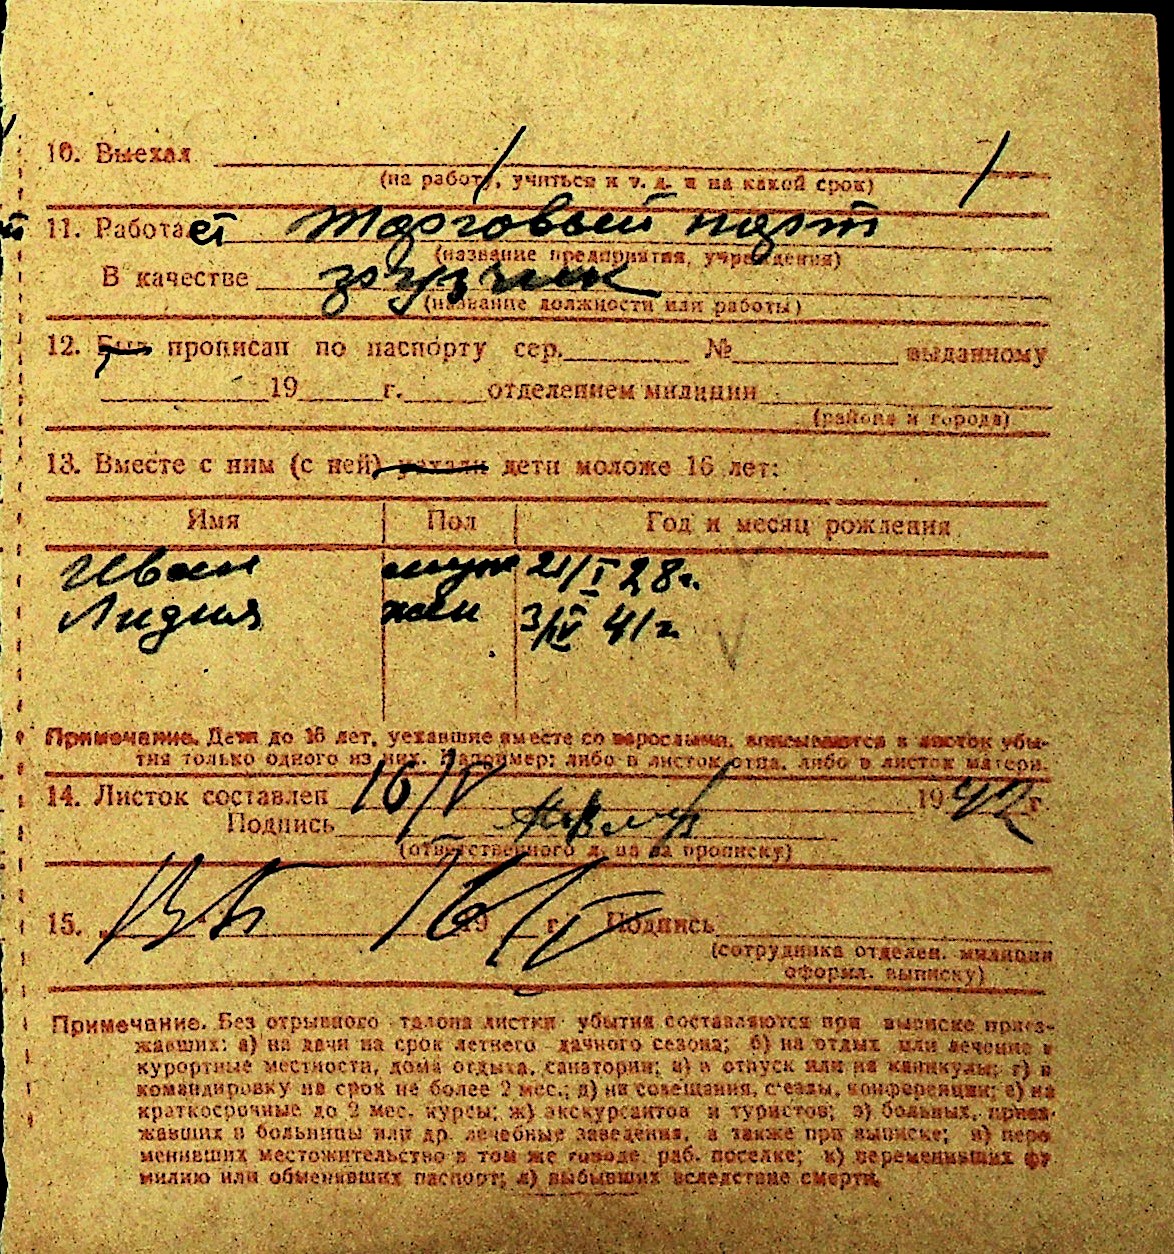 10. Выехал
(на работу, учиться и т. д. и на какой срок)
11. Работает Торговый порт
(название предприятия, учреждения)
В качестве грузчик
(название должности или работы)
12. Был прописан по паспорту сер. № выданному
19 г. отделением милиции
(района и города)
13. Вместе с ним (с ней) уехали дети моложе 16 лет:
Имя Пол Год и месяц рождения
Иван муж 21/I 28 г.
Лидия жен 3/IV 41 г
Примечание. Дети до 16 лет, уехавшие вместе со взрослыми, вписываются в листок убы-
тия только одного из них. Например: либо в листок отца, либо в листок матери.
14. Листок составлен 16/V 1942 г.
Подпись
(ответственного л. на за прописку)
15. 16/V 19 г. Подпись
(сотрудника отделен. милиции
оформл. выписку)
Примечание. Без отрывного талона листки убытия составляются при выписке приез-
жавших: а) на дачи на срок летнего дачного сезона; б) на отдых или лечение в
курортные местности, дома отдыха, санатории; в) в отпуск или на каникулы; г) в
командировку на срок не более 2 мес.; д) на совещания, съезды, конференции; е) на
краткосрочные до 2 мес. курсы; ж) экскурсантов и туристов; з) больных, приез-
жавших в больницы или др. лечебные заведения, а также при выписке; и) пере
менивших местожительство в том же городе, раб. поселке; к) переменивших фа
милию или обменявших паспорт; л) выбывших вследствие смерти.